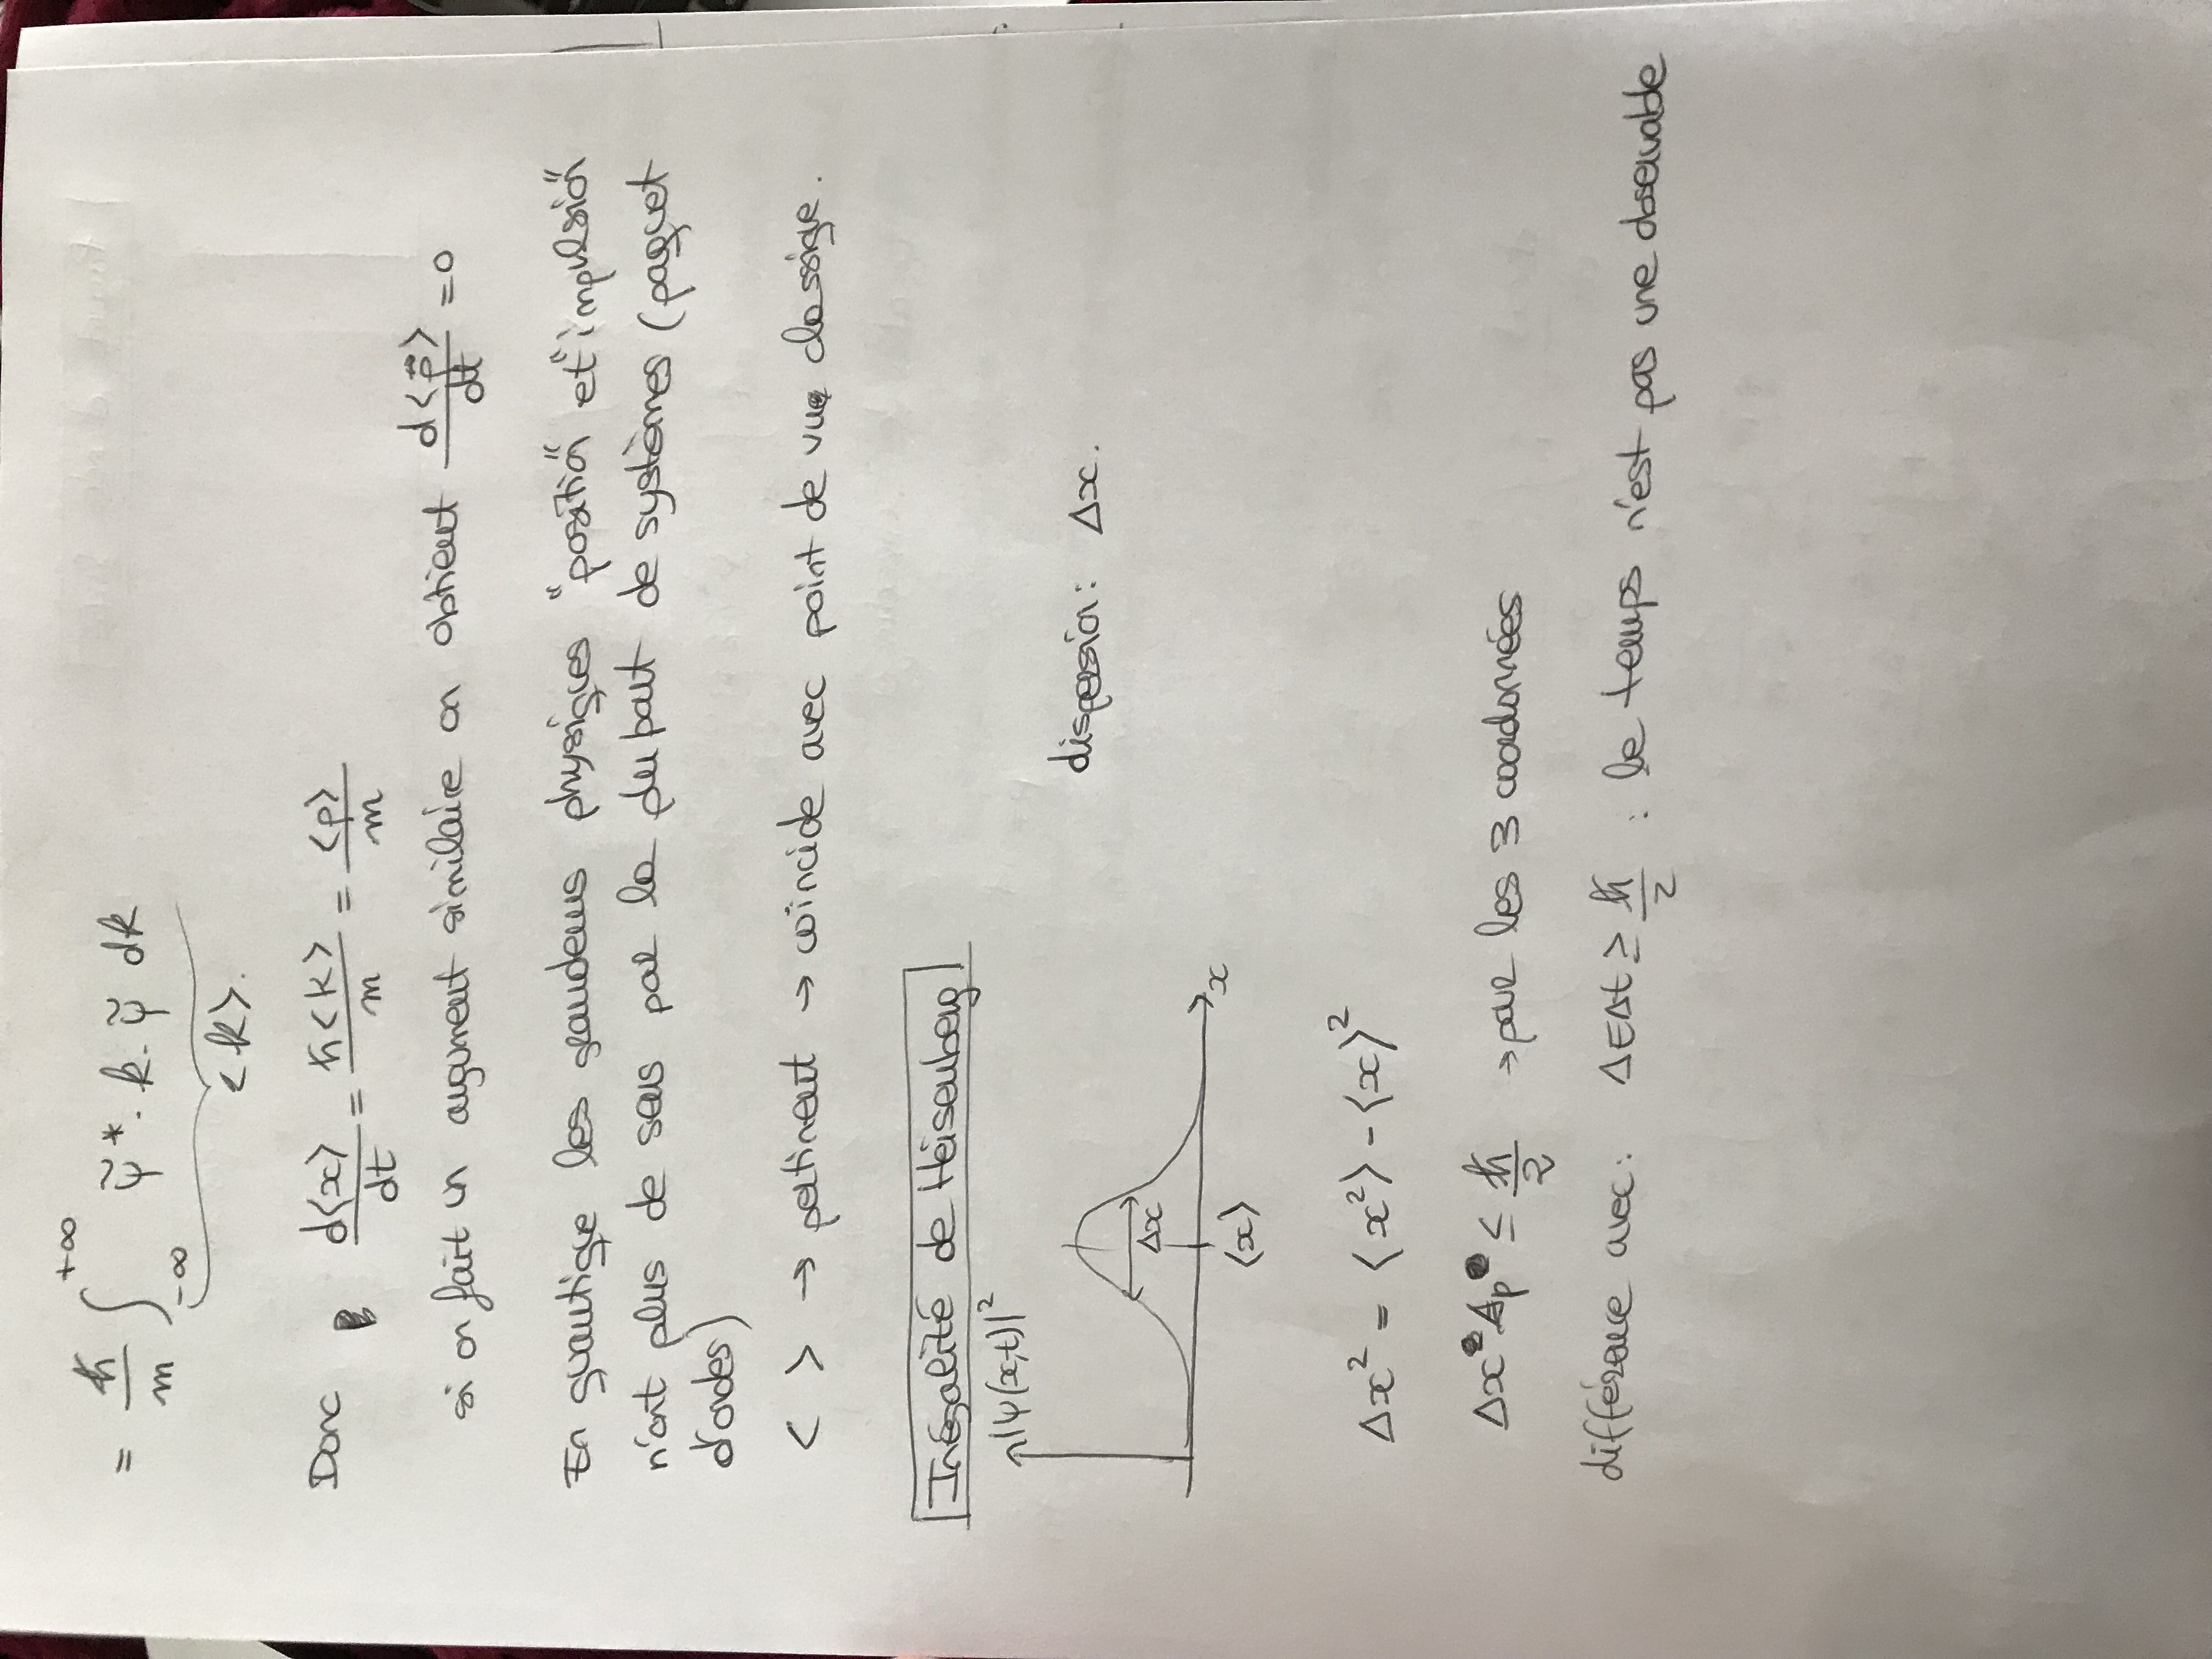 = ħ/m ∫_{-∞}^{+∞} ψ̃* . k . ψ̃ dk
<k>.
Donc d<x>/dt = ħ<k>/m = <p>/m
si on fait un argument similaire on obtient d<p⃗>/dt = 0
En quantique les grandeurs physiques "position" et "impulsion"
n'ont plus de sens par la plupart de systèmes (paquet
d'ondes)
< > → pertinent → coïncide avec point de vue classique.
Inégalité de Heisenberg
|ψ(x,t)|²
dispersion : Δx.
Δx
x
<x>
Δx² = <x²> - <x>²
Δx Δp ≤ ħ/2 → pour les 3 coordonnées
différence avec : ΔEΔt ≥ ħ/2 : le temps n'est pas une observable